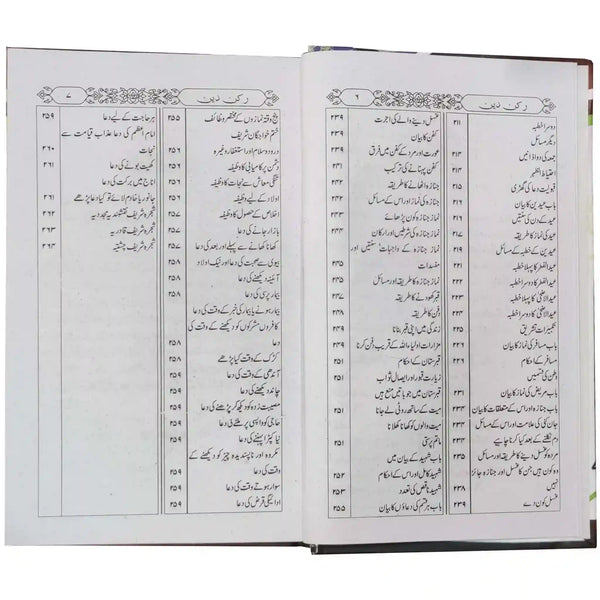 رکن دین
۶
دوسرا خطبہ ۲۱۱
دیگر مسائل
جمعہ کی دو اذانیں ۲۱۳
احتیاط الظہر ۲۱۳
قبولیت دعا کی گھڑی ۲۱۴
باب عیدین کا بیان ۲۱۵
عید کے دن کی سنتیں ۲۱۷
عید کی نماز کا طریقہ
عیدین کے خطبہ کے مسائل ۲۱۹
عید الفطر کا پہلا خطبہ ۲۲۱
عید الفطر کا دوسرا خطبہ
عید الاضحیٰ کا پہلا خطبہ
عید الاضحیٰ کا دوسرا خطبہ
تکبیرات تشریق
باب مسافر کی نماز کا بیان
مسافر کے احکام ۲۲۹
وطن کی قسمیں
باب مریض کی نماز کا بیان ۲۳۱
باب جنازہ اور اس کے متعلقات کا بیان ۲۳۳
جان کنی کی علامت اور اس کے مسائل ۲۳۳
دم نکلنے کے بعد کیا کرنا چاہیے ۲۳۴
مردہ کو غسل دینے کا طریقہ اور مسائل ۲۳۵
وہ مسائل ہیں جن کا غسل اور جنازہ جائز
نہیں ۲۳۸
غسل کون دے ۲۳۹
غسل دینے والے کی اجرت ۲۳۹
کفن کا بیان ۲۳۹
عورت اور مرد کے کفن میں فرق
کفن پہنانے کی ترکیب
جنازہ اٹھانے کا طریقہ
نماز جنازہ اور اس کے مسائل
نماز جنازہ کون پڑھائے
نماز جنازہ کی شرطیں اور ارکان
نماز جنازہ کے واجبات سنتیں اور
مفسدات
نماز جنازہ کا طریقہ
قبر کھودنے کا طریقہ
دفن کا طریقہ
زندگی میں اپنی قبر بنانا
مزارات اولیاء اللہ کے قریب دفن کرنا
قبرستان کے احکام ۲۵۱
زیارت قبور اور ایصال ثواب
قبرستان میں جو باتیں منع ہیں
میت کے ساتھ روٹی لے جانا
میت والوں کو کھانا کھلانا
ماتم پرسی ۲۵۱
باب شہید کے بیان میں
شہید کامل اور اس کے احکام ۲۵۲
شہید ناقص کی تعداد ۲۵۳
باب ہر قسم کی دعاؤں کا بیان ۲۵۵
رکن دین
۷
پنج وقتہ نمازوں کے مختصر وظائف ۲۵۵
ختم خواجگان شریف
درود و سلام اور استغفار وغیرہ
دشمن پر کامیابی کا وظیفہ ۲۵۶
تنگی معاش سے نجات کا وظیفہ ۲۵۶
اخلاص کے حصول کا وظیفہ ۲۵۶
بازار جانے کی دعا ۲۵۷
کھانا کھانے سے پہلے اور بعد کی دعا ۲۵۷
بیوی سے صحبت کی دعا اور نیک اولاد ۲۵۷
آئینہ دیکھنے کی دعا ۲۵۸
بیمار پرسی کی دعا ۲۵۸
بیمار ہونے یا بیمار کی خبر کے وقت کی دعا
کافروں مشرکوں کو دیکھنے کے وقت کی
دعا ۲۵۸
کڑک کے وقت کیا پڑھے
آندھی کے وقت کی دعا
چاند دیکھنے کی دعا
مصیبت زدہ کو دیکھ کر پڑھنے کی دعا
حاجی کو واپسی پر ملنے کی دعا
نیا کپڑا پہننے کی دعا ۲۵۹
مکروہ اور ناپسندیدہ چیز کو دیکھنے کے
وقت کی دعا
سوار ہوتے وقت کی دعا ۲۵۹
ادائیگی قرض کی دعا ۲۵۹
ہر حاجت کے لیے دعا ۲۵۹
امام اعظم کی دعا عذاب قیامت سے
نجات ۲۶۰
کھیت بونے کی دعا ۲۶۱
اناج میں برکت کی دعا ۲۶۱
جانور یا خادم لائے تو کیا دعا پڑھے
شجرہ شریف نقشبندیہ مجددیہ
شجرہ شریف قادریہ
شجرہ شریف چشتیہ